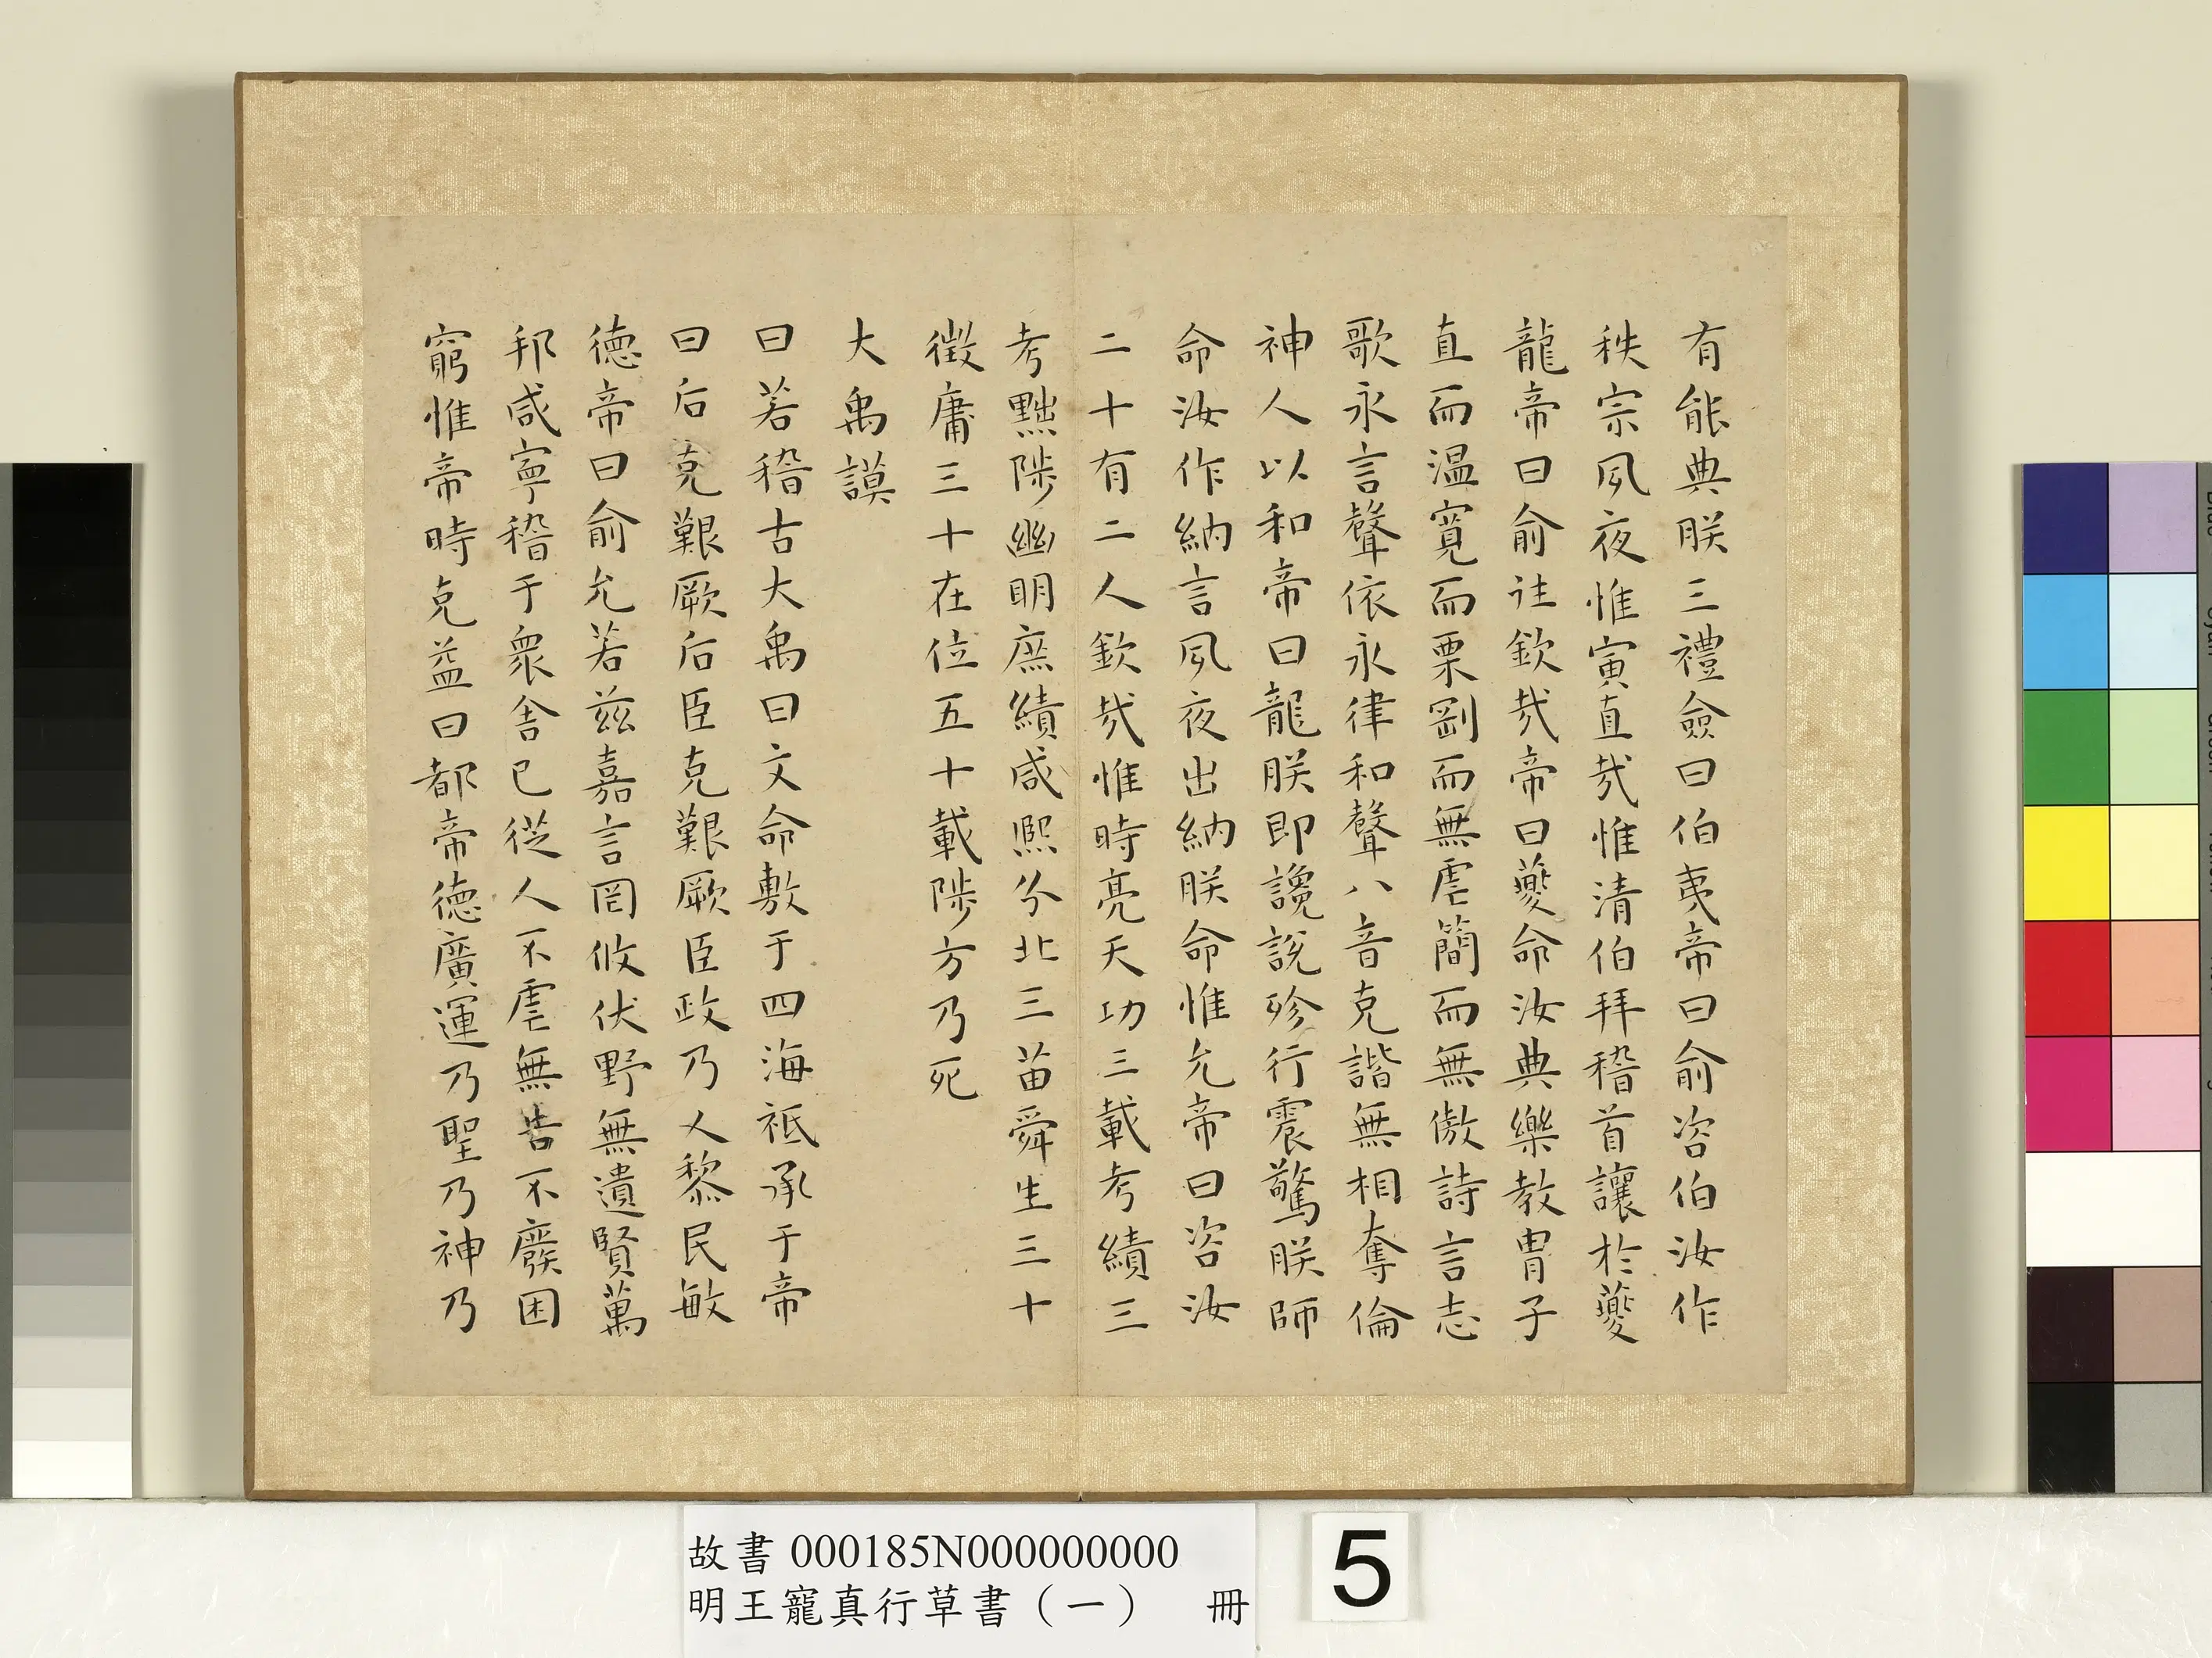 有能典朕三禮僉曰伯夷帝曰俞咨伯汝作
秩宗夙夜惟寅直哉惟清伯拜稽首讓於夔
龍帝曰俞往欽哉帝曰夔命汝典樂教冑子
直而溫寬而栗剛而無虐簡而無傲詩言志
歌永言聲依永律和聲八音克諧無相奪倫
神人以和帝曰龍朕即讒說殄行震驚朕師
命汝作納言夙夜出納朕命惟允帝曰咨汝
二十有二人欽哉惟時亮天功三載考績三
考黜陟幽明庶績咸熙分北三苗舜生三十
徵庸三十在位五十載陟方乃死
大禹謨
曰若稽古大禹曰文命敷于四海祗承于帝
曰后克艱厥后臣克艱厥臣政乃乂黎民敏
德帝曰俞允若茲嘉言罔攸伏野無遺賢萬
邦咸寧稽于眾舍已從人不虐無告不廢困
窮惟帝時克益曰都帝德廣運乃聖乃神乃
故書 000185N000000000
明王寵真行草書（一） 冊
5